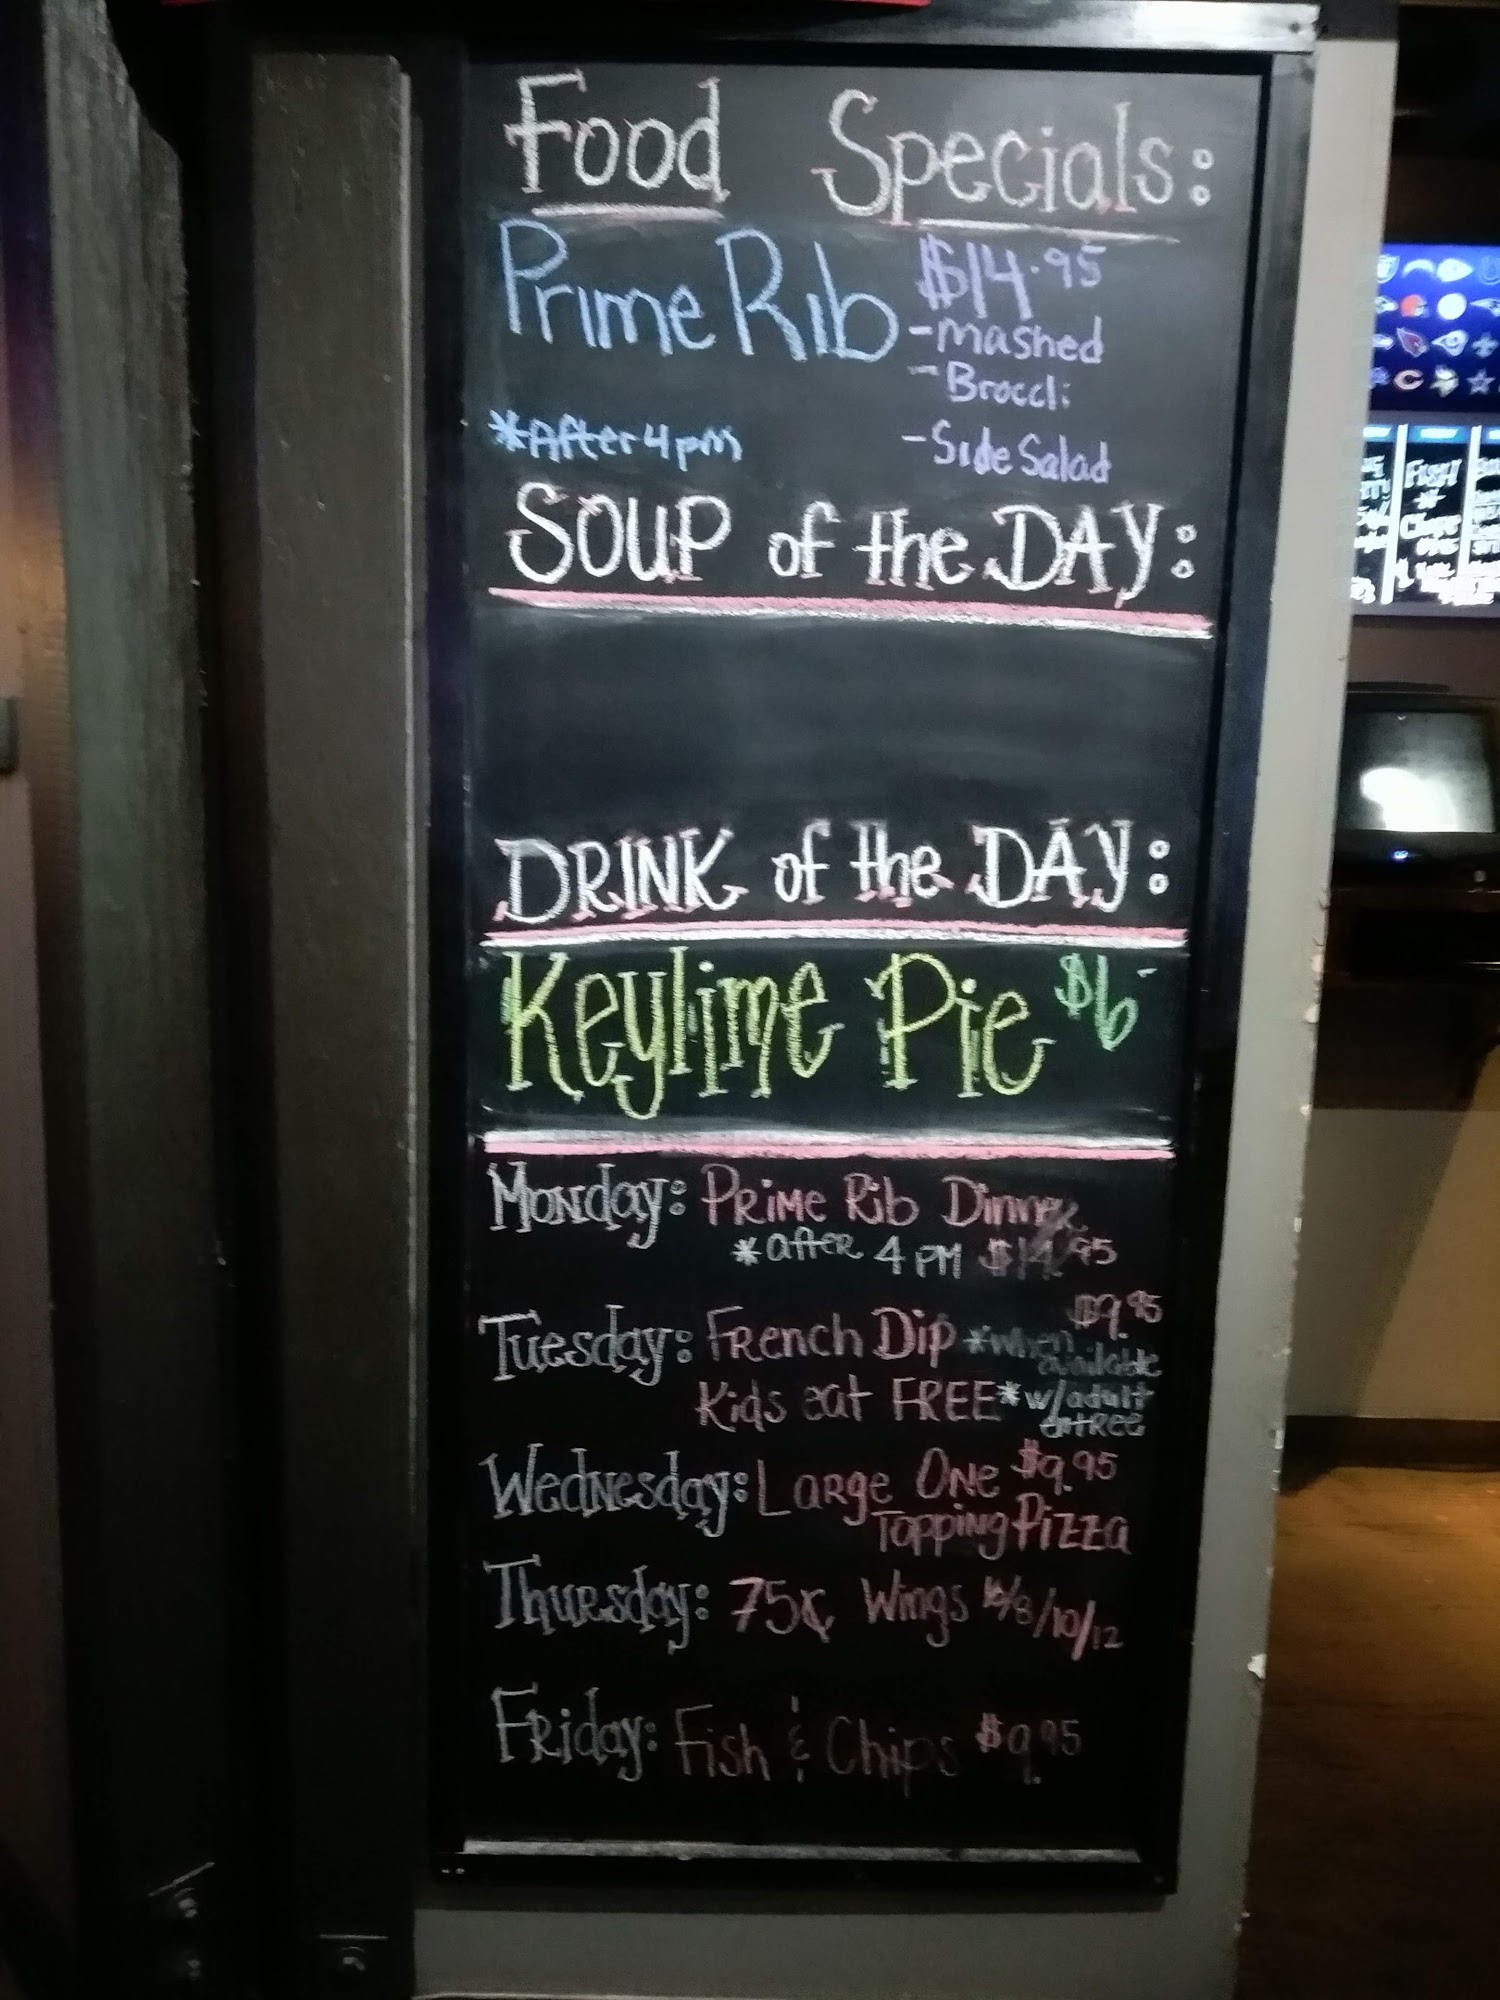 Food Specials:
Prime Rib $14.95
-mashed
-Broccli
*After 4pm
-Side Salad
SOUP of the DAY:
DRINK of the DAY:
Keylime Pie $6-
Monday: Prime Rib Dinner
*after 4 PM $14.95
Tuesday: French Dip *when available $9.95
Kids eat FREE *w/adult entree
Wednesday: Large One $9.95
Topping Pizza
Thursday: 75¢ Wings /8/10/12
Friday: Fish & Chips $9.95
FISH